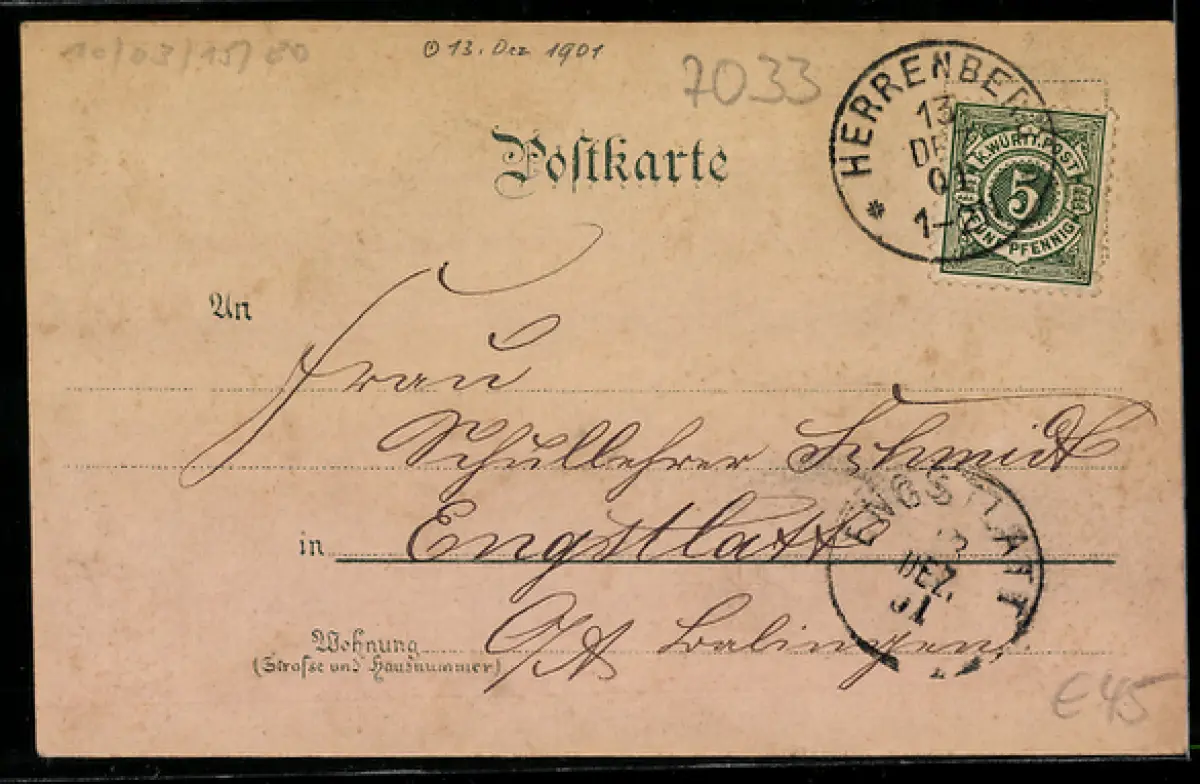 10/03/15/80
⊙ 13. Dez 1901
7033
HERRENBERG
13
DEZ
01
1-
K. WÜRTT. POST
5
FÜNF PFENNIG
Postkarte
An
Frau
Schullehrer Schmidt
in Engstlatt
ENGSTLATT
DEZ.
01
Wohnung O/A Balingen.
(Straße und Hausnummer)
€45